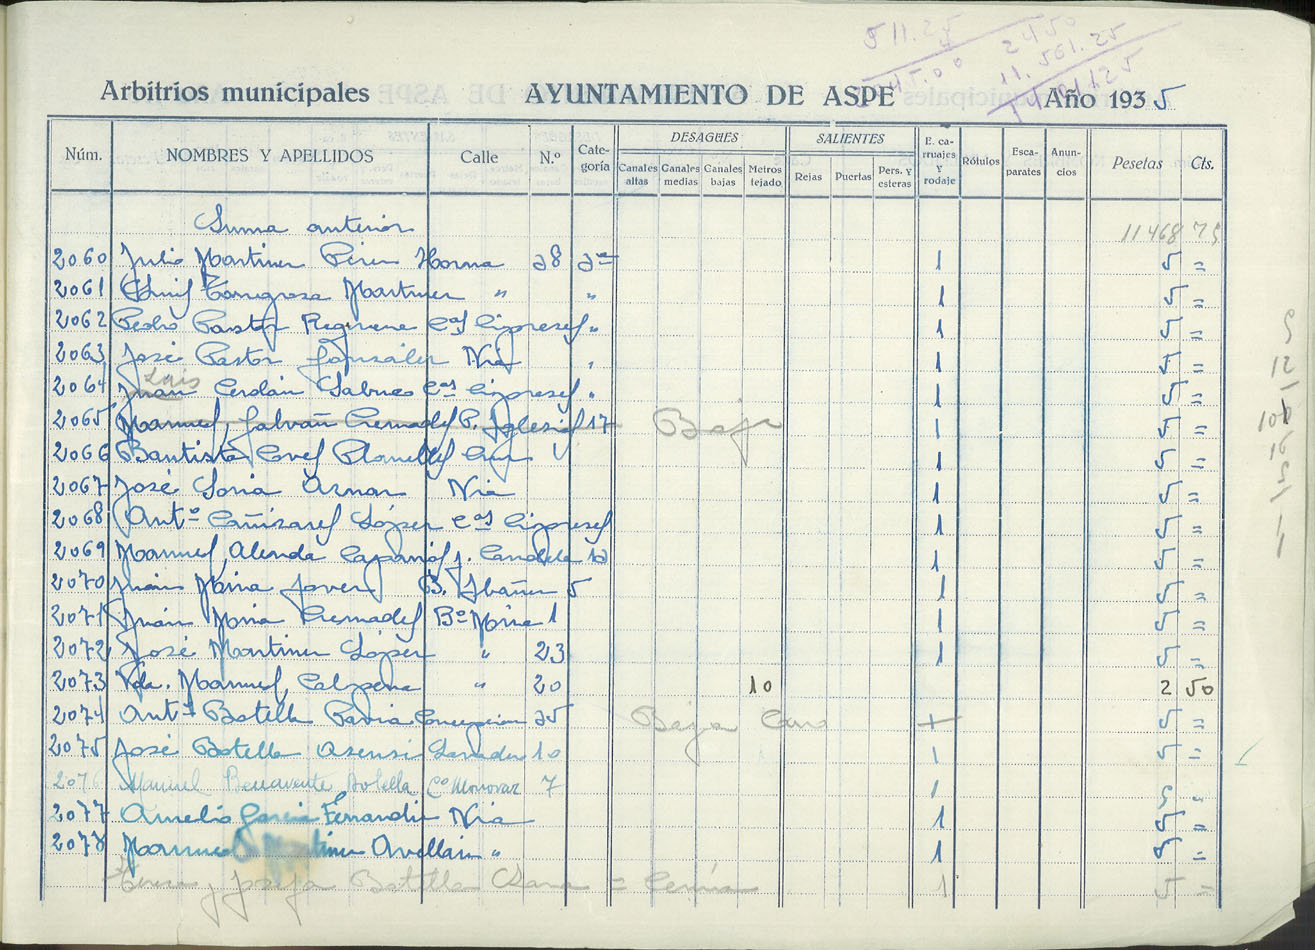 511.25
2450
45.00
11.561.25
Arbitrios municipales AYUNTAMIENTO DE ASPE Año 1935
Núm. NOMBRES Y APELLIDOS Calle N.º Cate-goría DESAGÜES Canales altas Canales medias Canales bajas Metros tejado SALIENTES Rejas Puertas Pers. y esteras E. ca-rruajes y rodaje Rótulos Esca-parates Anun-cios Pesetas Cts.
Suma anterior 11468 75
2060 Julio Martinez Perez Horna 28 2ª 1 5 =
2061 Martinez " " 1 5 =
2062 Pedro Pastor Cas Cipreses " 1 5 =
2063 José Pastor González Nia " 1 5 =
2064 Juan Luis Cerdán Sabuco Cas Cipreses " 1 5 =
2065 Manuel Galvañ Cremades P. Iglesias 17 Baja 1 5 =
2066 Bautista Planelles Cruz 1 5 =
2067 José Soria Aznar Nia 1 5 =
2068 Antº Cañizares López Cas Cipreses 1 5 =
2069 Manuel Alenda J. Candela 12 1 5 =
2070 Juan Mira Jover B. Ibañez 5 1 5 =
2071 Juan Mira Cremades Bº Mira 1 1 5 =
2072 José Martinez López " 23 1 5 =
2073 Vda. Manuel Calpena " 20 10 2 50
2074 Antº Botella Pavia Concepcion 25 Baja 5 =
2075 José Botella Asensi Lavador 10 1 5 =
2076 Manuel Benavente Botella Cº Monovar 7 1 5 "
2077 Aurelio Garcia Fernandez Nia 1 5 =
2078 Manuel Martinez Avellan " 1 5 =
Teresa y Josefa Botella 1 5 =